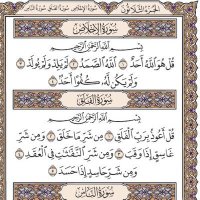 الجزء الثلاثون سورة الإخلاص سورة الفلق سورة الناس
سورة الإخلاص
بسم الله الرحمن الرحيم
قُلْ هُوَ اللَّهُ أَحَدٌ ١ اللَّهُ الصَّمَدُ ٢ لَمْ يَلِدْ وَلَمْ يُولَدْ ٣
وَلَمْ يَكُن لَّهُ كُفُوًا أَحَدٌ ٤
سورة الفلق
بسم الله الرحمن الرحيم
قُلْ أَعُوذُ بِرَبِّ الْفَلَقِ ١ مِن شَرِّ مَا خَلَقَ ٢ وَمِن شَرِّ
غَاسِقٍ إِذَا وَقَبَ ٣ وَمِن شَرِّ النَّفَّاثَاتِ فِي الْعُقَدِ ٤
وَمِن شَرِّ حَاسِدٍ إِذَا حَسَدَ ٥
سورة الناس